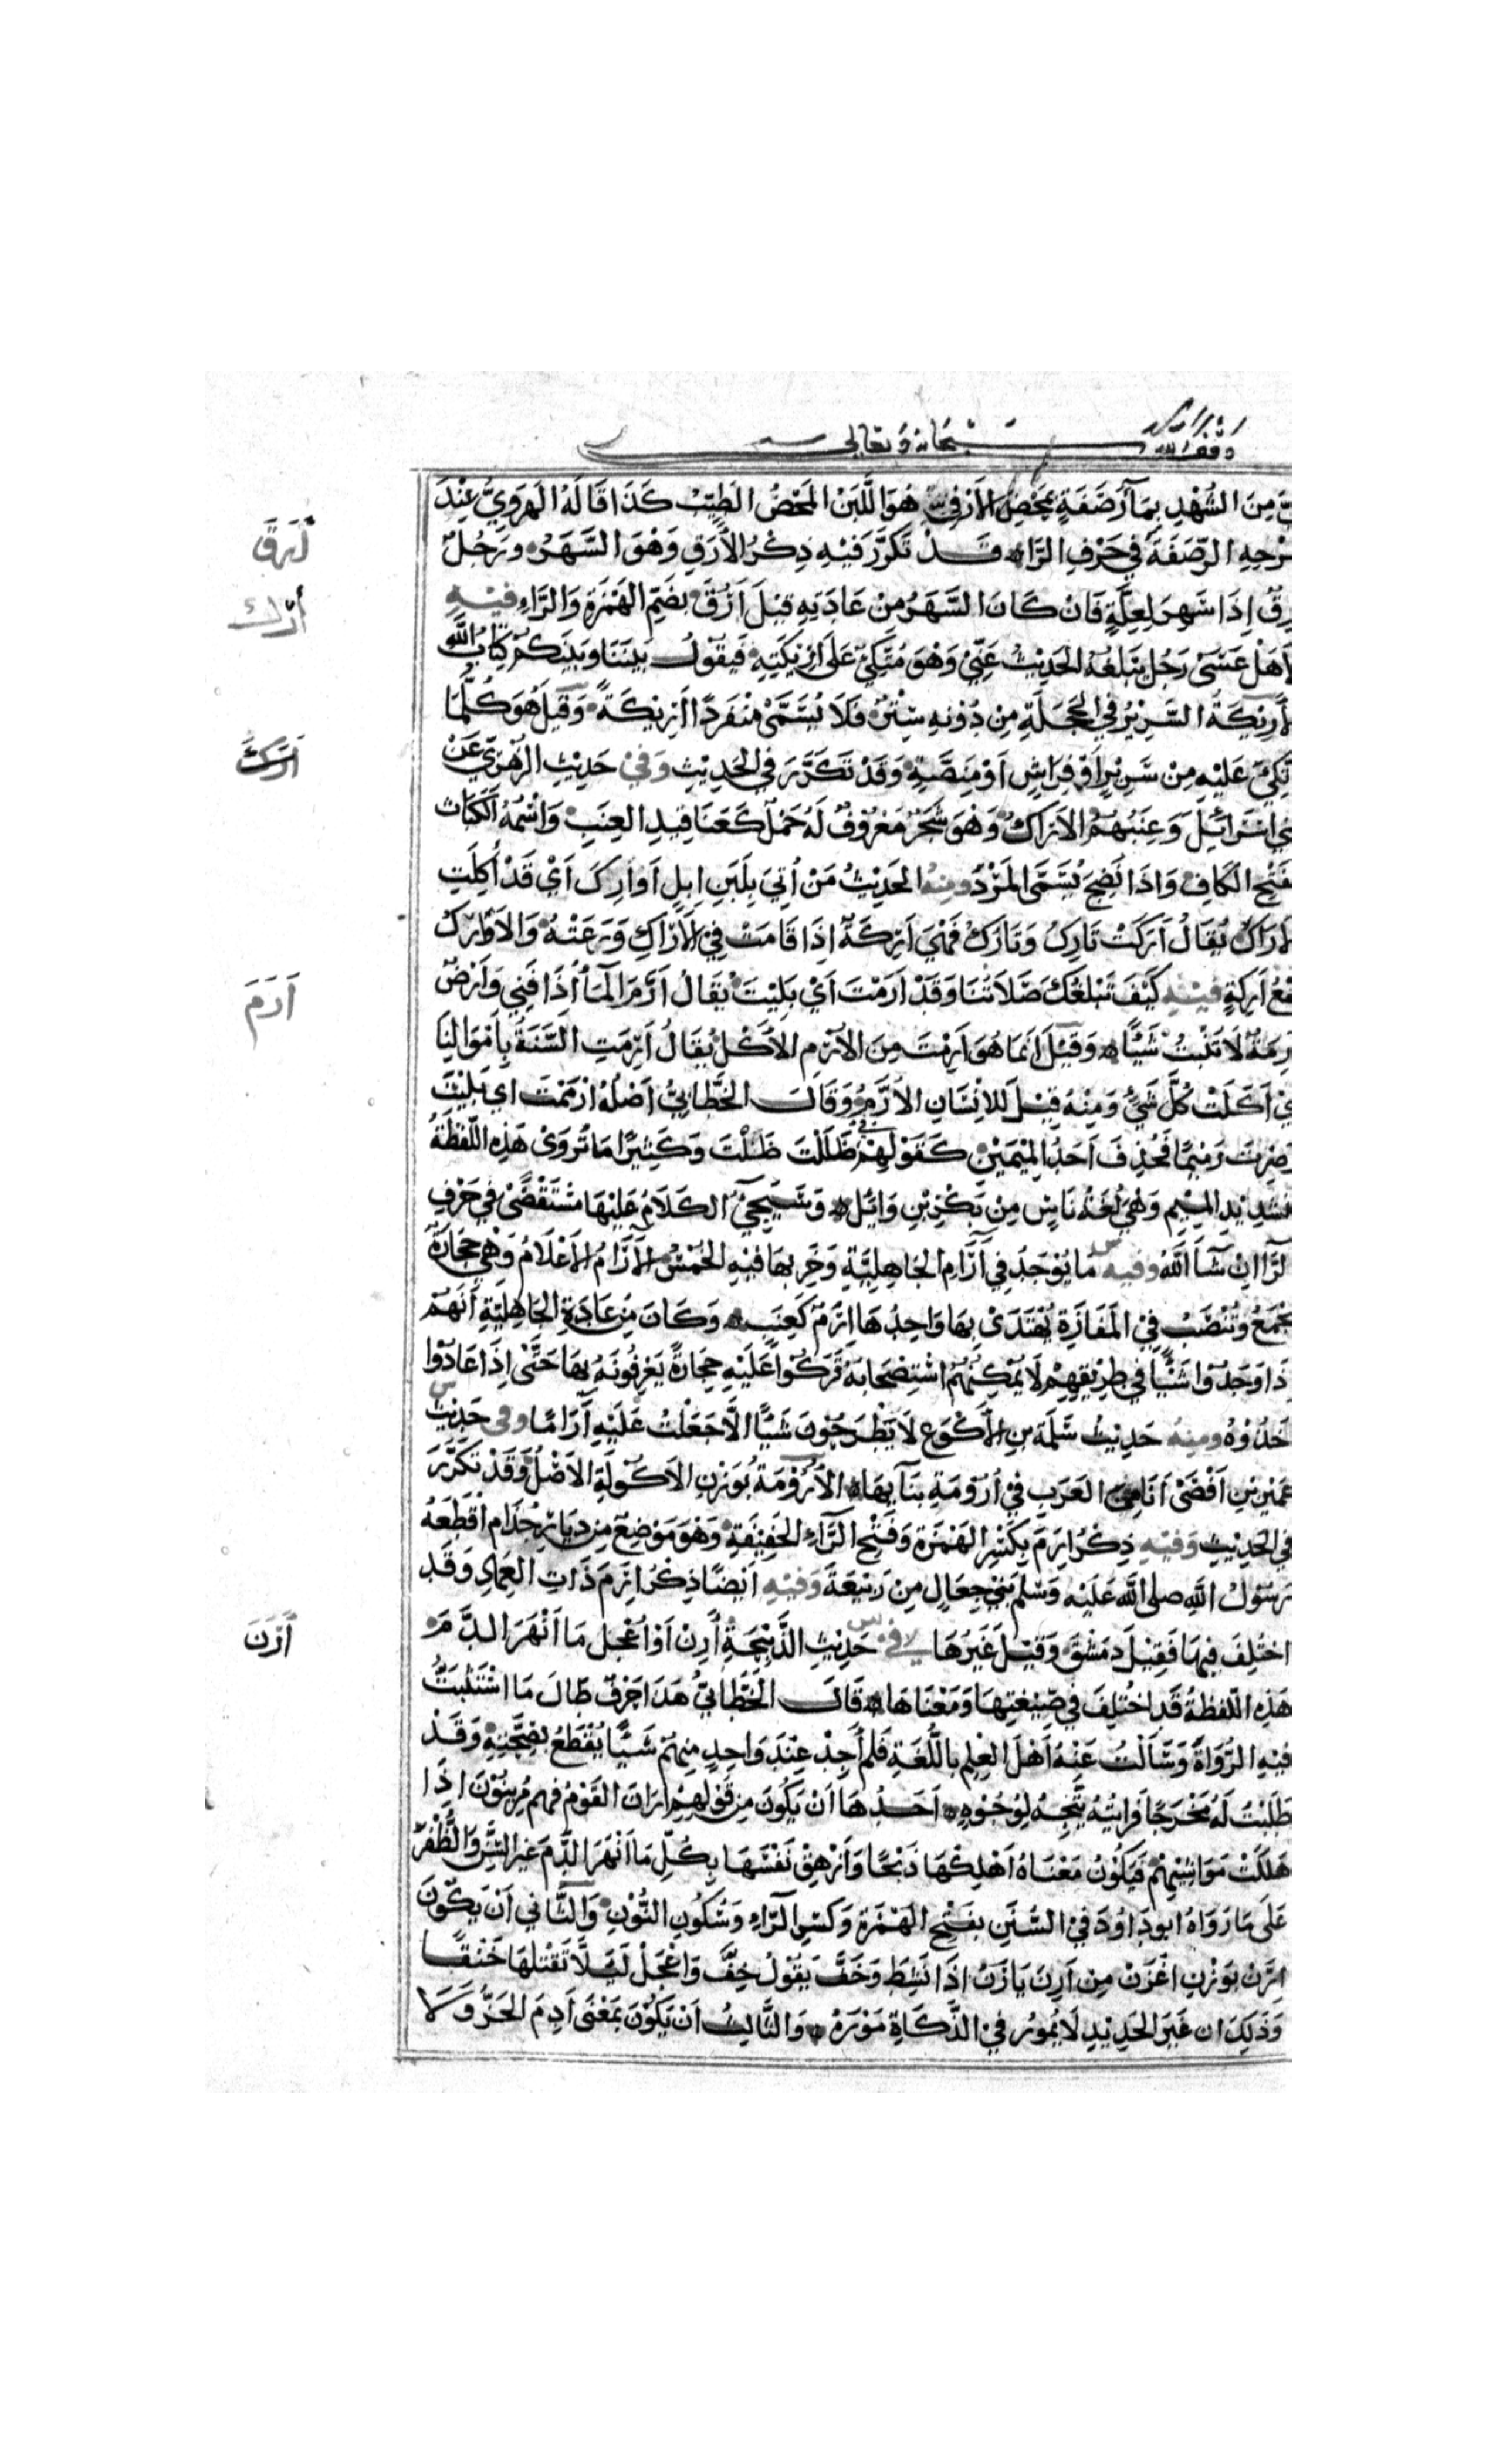 وقف لله سبحانه وتعالى
مِنَ الشُّهْدِ بِمَآءِ رَصَفَةٍ بِمَحْضِ الأَرْفِيِّ هُوَ اللَّبَنُ المَحْضُ الطَيِّبُ كَذَا قَالَهُ الهَرَوِيُّ عِنْدَ
أَرَقَ
الرَّصَفَةَ فِي حَرْفِ الرَّا قَدْ تَكَرَّرَ فِيهِ ذِكْرُ الأَرَقِ وَهْوَ السَّهَرُ وَرَجُلٌ
رِقٌ اِذَا سَهِرَ لِعِلَّةٍ فَاِنْ كَانَ السَّهَرُ مِنْ عَادَتِهِ قِيْلَ اُرُقٌ بِضَمِّ الهَمْزَةِ وَالرَّاءِ فِيْهِ
أرك
اَهَلْ عَسَى رَجُلٌ يَبْلُغُهُ الحَدِيْثُ عَنِّيْ وَهْوَ مُتَّكِئٌ عَلَى اَرِيْكَتِهِ فَيَقُوْلُ بَيْنَنَا وَبَيْنَكُمْ كِتَابُ اللّٰهِ
لأَرِيْكَةُ السَّرِيْرُ فِي الحَجَلَةِ مِنْ دُوْنِهِ سِتْرٌ فَلَا يُسَمَّى مُنْفَرِدًا اَرِيْكَةً وَقِيْلَ هُوَ كُلُّمَا
تُّكِئَ عَلَيْهِ مِنْ سَرِيْرٍ اَوْ فِرَاشٍ اَوْ مِنَصَّةٍ وَقَدْ تَكَرَّرَ فِي الحَدِيْثِ وَفِيْ حَدِيْثِ الزُّهْرِيِّ عَنْ
نِي اِسْرَائِيْلَ وَعِنَبُهُمُ الاَرَاكُ وَهْوَ شَجَرٌ مَعْرُوْفٌ لَهُ حَمْلٌ كَعَنَاقِيدِ العِنَبِ وَاسْمُهُ الكَبَاث
بفَتْحِ الكَافِ وَاِذَا نَضِجَ يُسَمَّى المَرْدُ وَمِنْهُ الحَدِيْثُ مَنْ اُتِيَ بِلَبَنِ اِبِلٍ اَوَارِكَ اَيْ قَدْ أَكَلَتِ
لاَرَاكَ يُقَالُ اَرَكَتْ تَارِكُ وَتَارُكُ فَهْيَ اَرِكَةٌ اِذَا قَامَتْ فِي الأَرَاكِ وَرَعَتْهُ وَالاَوَارِكُ
أَرَمَ
مْعُ اَرِكَةٍ فِيْهِ كَيْفَ تَبْلُغُكَ صَلَاتُنَا وَقَدْ اَرَمْتَ اَيْ بَلِيْتَ يُقَالُ اَرِمَ المَالُ اِذَا فَنِي وَاَرْضٌ
رِمَةٌ لَا تُنْبِتُ شَيْئًا وَقِيْلَ اِنَّمَا هُوَ اُرِمْتَ مِنَ الاَرْمِ الاَكْلِ يُقَالُ اَرِمَتِ السَّنَةُ بِاَمْوَالِنَا
يْ اَكَلَتْ كُلَّ شَيْءٍ وَمِنْهُ قِيْلَ لِلاَسْنَانِ الاُرَّمُ وَقَالَ الخَطَّابِيُّ اَصْلُهُ اَرْمَمْتَ اي بَلِيْتَ
وَصِرْتَ رَمِيْمًا فَحُذِفَ اَحَدُ المِيْمَيْنِ كَقَوْلِهِمْ فِي ظَلِلْتَ ظَلْتَ وَكَثِيْرًا مَا تُرْوَى هَذِهِ اللَّفْظَةُ
بتَشْدِيْدِ المِيْمِ وَهْيَ لُغَةُ نَاسٍ مِنْ بَكْرِ بْنِ وَائِلٍ وَسَيَجِيْءُ الكَلَامُ عَلَيْهَا مُسْتَقْصًى فِي حَرْفِ
لرَّا اِنْ شَآءَ اللّٰهُ وَفِيهِ مَا يُوْجَدُ فِي آرَامِ الجَاهِلِيَّةِ وَخَرِبِهَا فِيْهِ الخُمُسُ الآرَامُ الاَعْلَامُ وَهْيَ حِجَارَةٌ
تُجْمَعُ وَتُنْصَبُ فِي المَفَازَةِ يُهْتَدَى بِهَا وَاحِدُهَا اِرَمٌ كَعِنَبٍ وَكَانَ مِنْ عَادَةِ الجَاهِلِيَّةِ أَنَّهُمْ
ذَا وَجَدُوْا شَيْئًا فِي طَرِيْقِهِمْ لَا يُمْكِنُهُمُ اسْتِصْحَابَهُ تَرَكُوْا عَلَيْهِ حِجَارَةً يَعْرِفُونَهُ بِهَا حَتَّى اِذَا عَادُوْا
خَذُوْهُ وَمِنْهُ حَدِيْثُ سَلَمَةَ بنِ الأَكْوَعِ لَا يَطْرَحُوْنَ شَيْئًا الَّا جَعَلْتُ عَلَيْهِ آرَامًا وَفِي حَدِيْثِ
عُمَيْرِ بْنِ اَفْصَى اَنَا مِنَ العَرَبِ فِي اَرُوْمَةِ بِنَآئِهَا الاَرُوْمَةُ بِوَزْنِ الاَكُوْلَةِ الاَصْلُ وَقَدْ تَكَرَّرَ
فِي الحَدِيْثِ وَفِيْهِ ذِكْرُ اِرَمَ بِكَسْرِ الهَمْزَةِ وَفَتْحِ الرَّآءِ الخَفِيْفَةِ وَهْوَ مَوْضِعٌ مِنْ دِيَارِ جُذَامٍ اَقْطَعَهُ
رَسُوْلُ اللّٰهِ صلى اللّٰه عَلَيْهِ وَسَلَّمَ بَنِيْ جِعَالِ مِنْ رَبِيْعَةَ وَفِيْهِ اَيْضًا ذِكْرُ اِرَمَ ذَاتِ العِمَادِ وَقَدِ
أَرَنَ
اخْتُلِفَ فِيهَا فَقِيْلَ دِمَشْقُ وَقِيْلَ غَيْرُهَا فِي حَدِيْثِ الذَّبِيْحَةِ أَرِنْ اَوْ اعْجَلْ مَا اَنْهَرَ الدَّمَ
هَذِهِ اللَّفْظَةُ قَدِ اخْتُلِفَ فِي صِيْغَتِهَا وَمَعْنَاهَا قَالَ الخَطَّابِيُّ هَذَا حَرْفٌ طَالَ مَا اسْتَثْبَتُّ
فِيْهِ الرُّوَاةَ وَسَأَلْتُ عَنْهُ أَهْلَ العِلْمِ بِاللُّغَةِ فَلَمْ أَجِدْ عِنْدَ وَاحِدٍ مِنْهُمْ شَيْئًا يُقْطَعُ بِصِحَّتِهِ وَقَدْ
طَلَبْتُ لَهُ مَخْرَجًا فَرَايْتُهُ يَتَّجِهُ لِوُجُوْهٍ اَحَدُهَا اَنْ يَكُوْنَ مِنْ قَوْلِهِمْ اَرَانَ القَوْمُ فَهُمْ مُرِيْنُوْنَ اِذَا
هَلَكَتْ مَوَاشِيْهِمْ فَيَكُوْنُ مَعْنَاهُ اَهْلِكْهَا ذَبْحًا وَاَزْهِقْ نَفْسَهَا بِكُلِّ مَا اَنْهَرَ الدَّمَ غَيْرَ السِّنِّ وَالظُّفُرِ
عَلَى مَا رَوَاهُ ابو دَاوُدَ فِي السُّنَنِ بِفَتْحِ الهَمْزَةِ وَكَسْرِ الرَّآءِ وَسُكُوْنِ النُّوْنِ وَالثَّانِي اَنْ يَكُوْنَ
اِئْرَنْ بِوَزْنِ اعْرَنْ مِنْ اَرِنَ يَارَنُ اِذَا نَشِطَ وَخَفَّ يَقُوْلُ خِفَّ وَاعْجَلْ لَيْلَّا تَقْتُلَهَا خَنْقًا
وَذَلِكَ ان غَيْرَ الحَدِيْدِ لَا يَمُورُ فِي الذَّكَاةِ مَوْرَهُ وَالثَّالِثُ اَنْ يَكُوْنَ بِمَعْنَى اَدِمِ الحَزَّ وَلَا